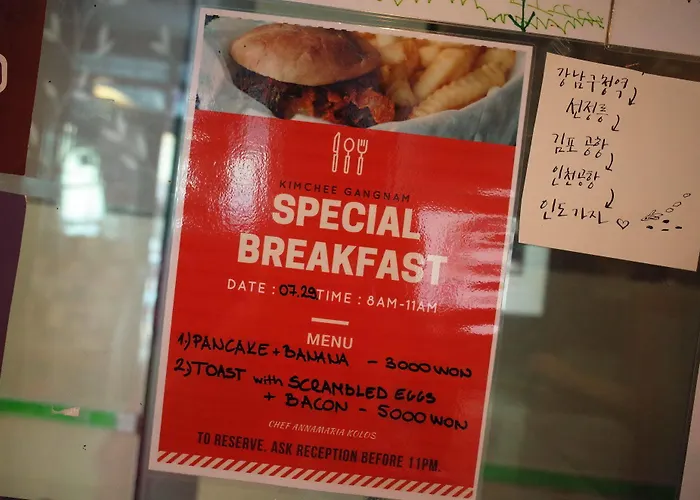 KIMCHEE GANGNAM
SPECIAL
BREAKFAST
DATE : 07.29 TIME : 8AM-11AM
MENU
1) PANCAKE + BANANA - 3000 WON
2) TOAST with SCRAMBLED EGGS
+ BACON - 5000 WON
CHEF ANNAMARIA KOLOS
TO RESERVE. ASK RECEPTION BEFORE 11PM.
강남구청역
선정릉
김포 공항
인천공항
인도 가자 ♡